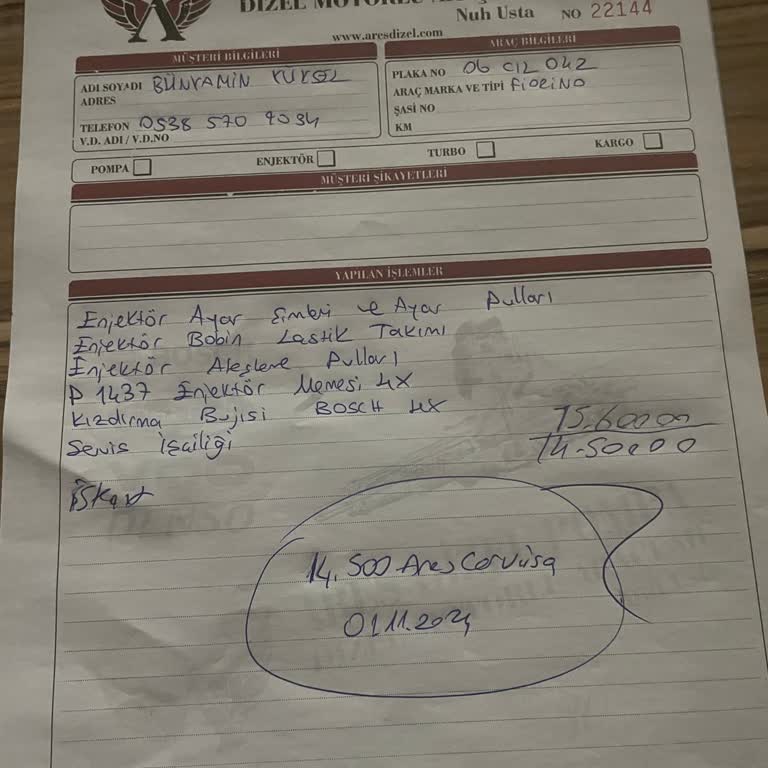 DİZEL MOTORLU
Nuh Usta NO 22144
www.aresdizel.com
MÜŞTERİ BİLGİLERİ
ADI SOYADI BÜNYAMİN YÜKSEL
ADRES
TELEFON 0538 570 9034
V.D. ADI / V.D.NO
ARAÇ BİLGİLERİ
PLAKA NO 06 CIZ 042
ARAÇ MARKA VE TİPİ FİORİNO
ŞASİ NO
KM
POMPA ENJEKTÖR TURBO KARGO
MÜŞTERİ ŞİKAYETLERİ
YAPILAN İŞLEMLER
Enjektör Ayar Simleri ve Ayar Pulları
Enjektör Bobin Lastik Takımı
Enjektör Ateşleme Pulları
P 1437 Enjektör Memesi 4X
Kızdırma Bujisi BOSCH 4X
Servis İşçiliği
15.600 00
14.500 00
İskont
14.500
01.11.2024